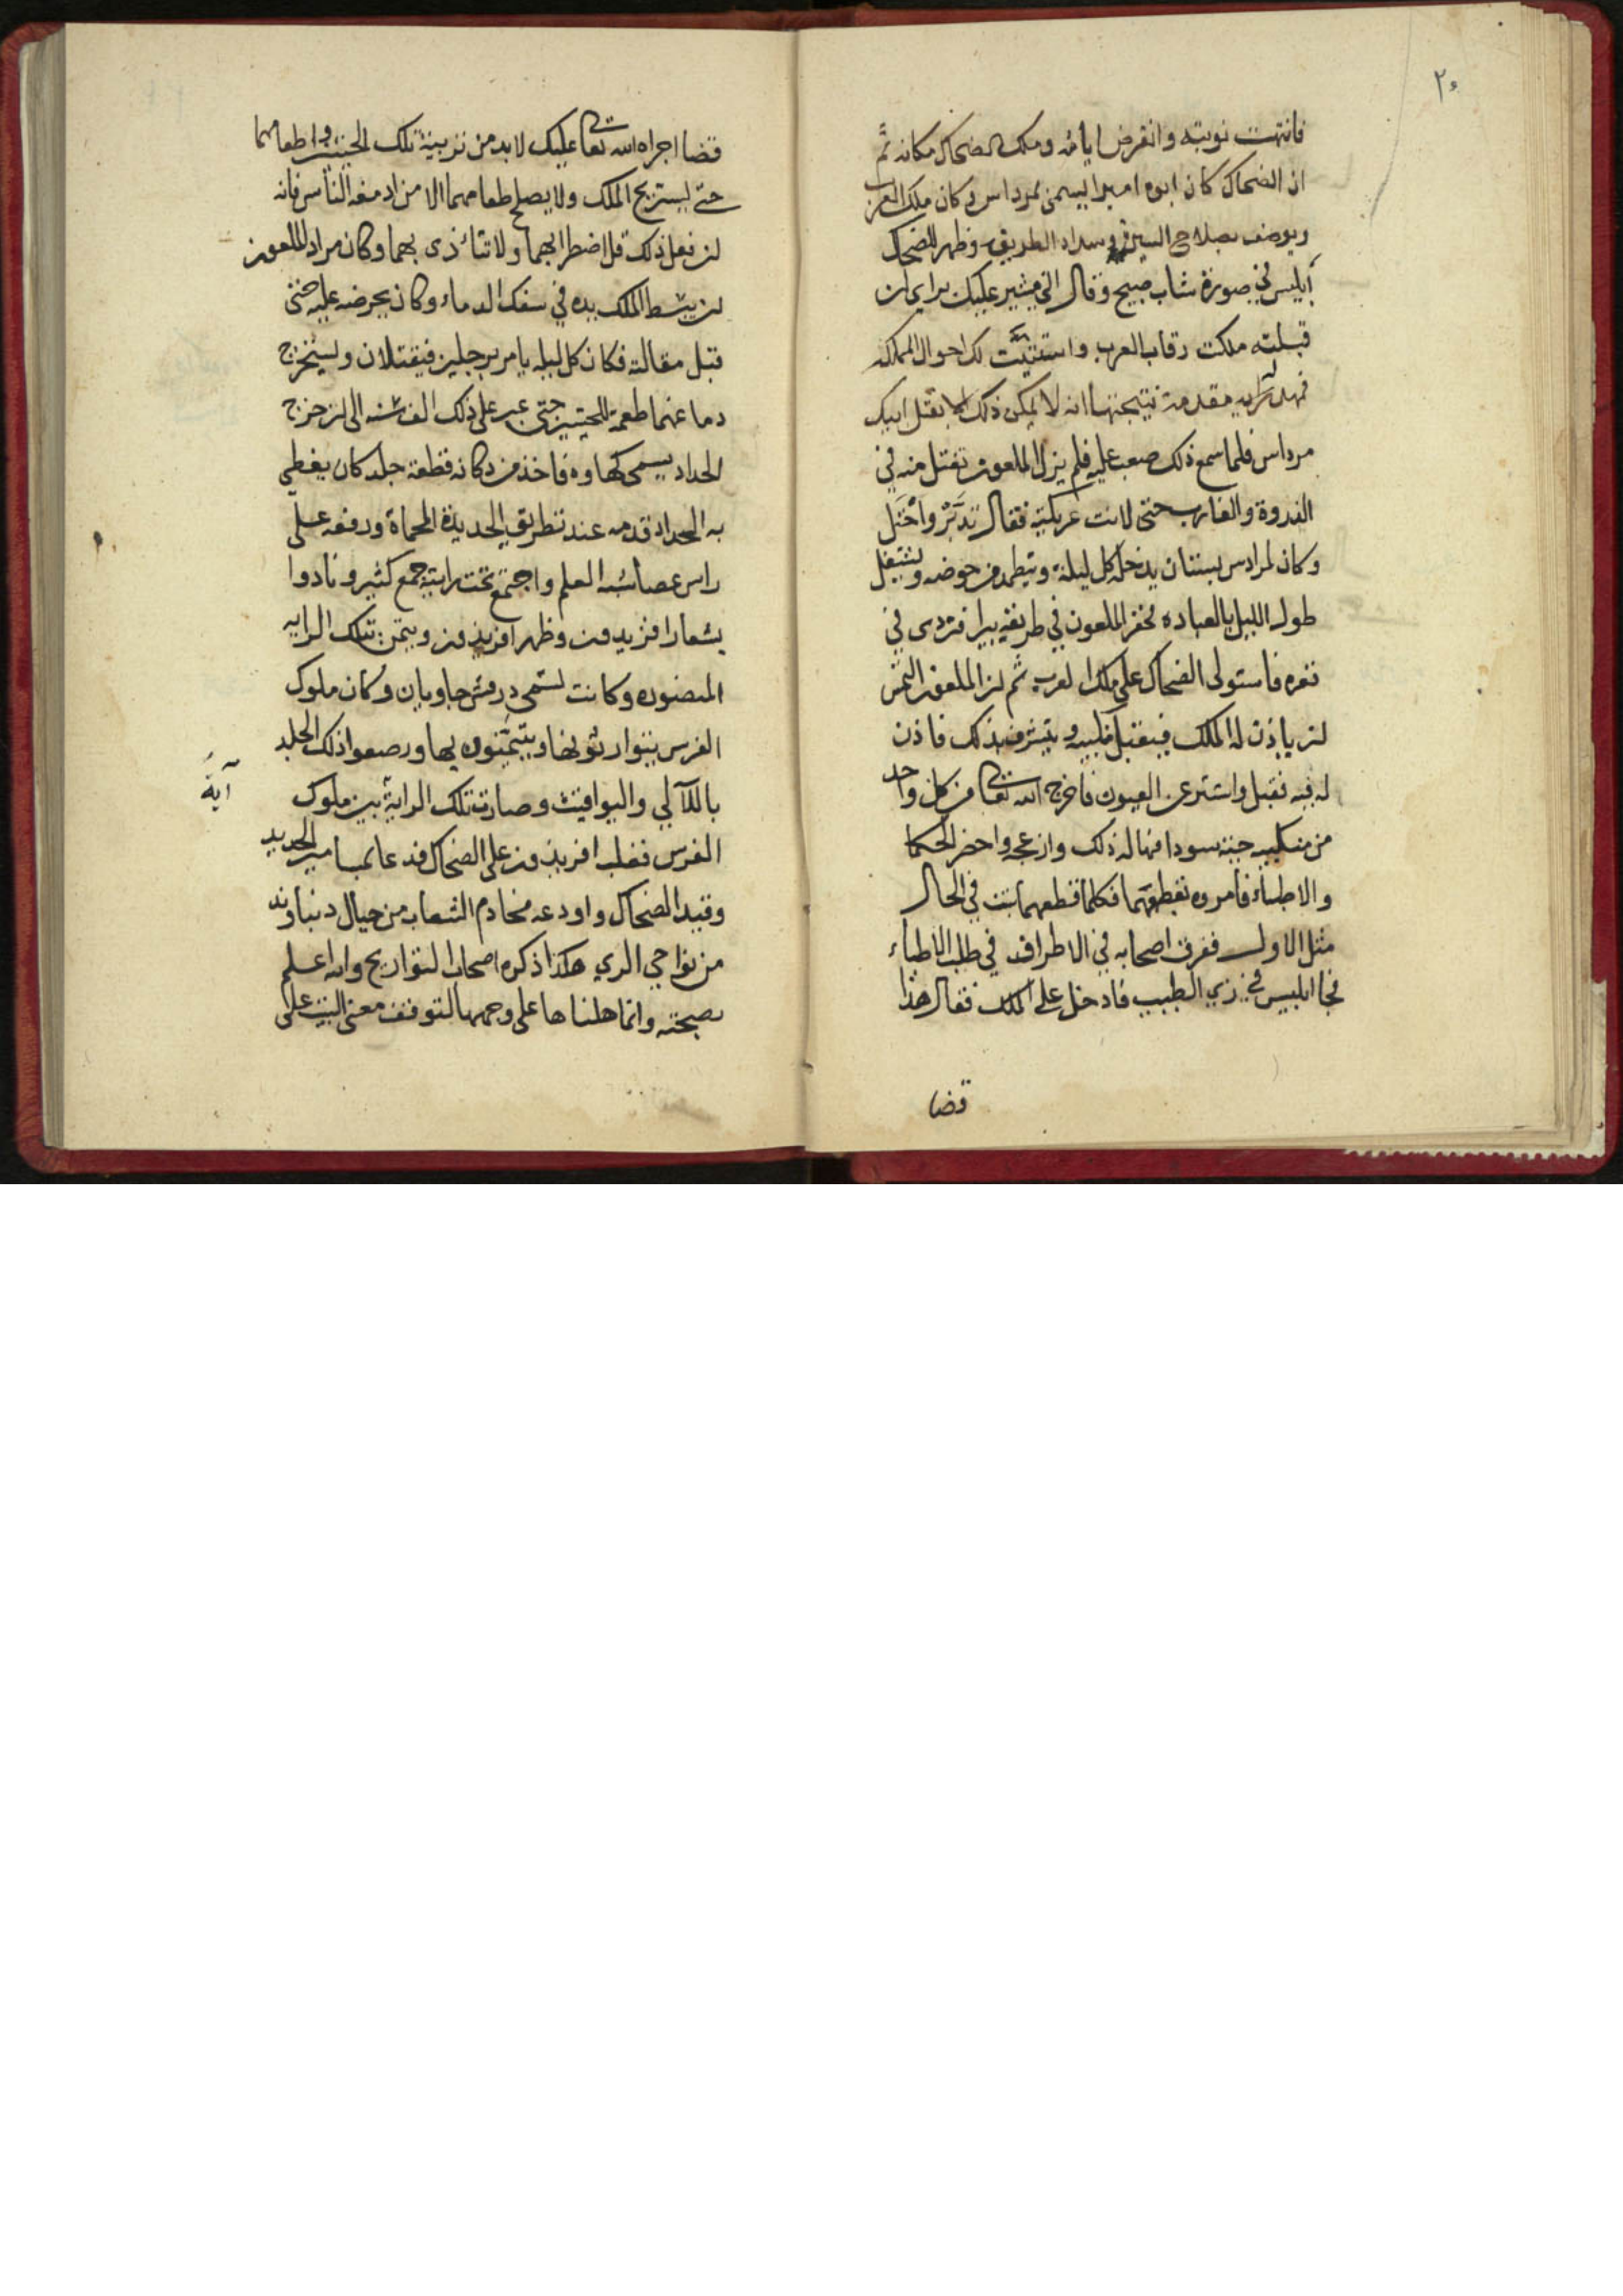 ٢٠
فانتهت نوبته وانقرض ايامه وملك الضحاك مكانه ثم
ان الضحاك كان ابوه اميرا يسمى لمرداس وكان ملك العرب
ويوصف بصلاح السيرة وسداد الطريق وظهر للضحاك
ابليس في صورة شاب صبيح وقال اني مشير عليك براى ان
قبلته ملكت رقاب العرب واستتبت لك احوال المملكه
فهد له مقدمة نتيجتها انه لا يمكن ذلك الا بقتل ابيك
مرداس فلما سمع ذلك صعب عليه فلم يزل الملعون تفتل منه في
الذروة والغارب حتى لانت عريكته فقال تدبر واختل
وكان لمرداس بستان يدخله كل ليلة ويتطهر من حوضه ويشتغل
طول الليل بالعباده فحفر الملعون في طريقه بيرا فتردى في
قعره فاستولى الضحاك على ملك العرب ثم ان الملعون التمس
ان ياذن له الملك فيقبل منكبيه ويتشرف بذلك فاذن
له فيه فقبل واستتر عن العيون فاخرج الله تعالى من كل واحد
من منكبيه حية سودا فهاله ذلك وازعجه واحضر الحكما
والاطباء فامروه بقطعهما فكلما قطعهما نبتت في الحال
مثل الاول ففرق اصحابه في الاطراف في طلب الاطباء
فجا ابليس في زي الطبيب فادخل على الملك فقال هذا
قضا
قضا اجراه الله تعالى عليك لا بد من تربية تلك الحيتين واطعامهما
حتى يستريح الملك ولا يصلح طعامهما الا من ادمغة الناس فانه
ان فعل ذلك قل اضطرابهما ولا تتأذى بهما وكان مراد الملعون
ان يبسط الملك يده في سفك الدماء وكان يحرضه عليه حتى
قبل مقالته فكان كل ليله يامر برجلين فيقتلان ويستخرج
دماغهما طعمة للحيتين حتى عبر على ذلك الف سنه الى ان خرج
الحداد يسمى كهاوه فاخذ من دكانه قطعة جلد كان يغطي
به الحداد قدمه عند تطريق الحديدة المحماة ورفعه على
راس عصا شبه العلم واجتمع تحت رايته جمع كثير ونادوا
بشعار افريدون وظهر افريذون وتيمن بتلك الرايه
المنصوره وكانت تسمى درفش جاويان وكان ملوك
الفرس يتوارثونها ويتيمنون بها ورصعوا ذلك الجلد
باللآلي واليواقيت وصارت تلك الراية بين ملوك
آية
الفرس فغلب افريذون على الضحاك فدعا بمسامير الحديد
وقيد الضحاك واودعه مخادم الشعاب من جبال دنباوند
من نواحي الري هكذا ذكره اصحاب التواريخ والله اعلم
بصحته وانما قلناها على وجهها لتوقف معنى البيت على